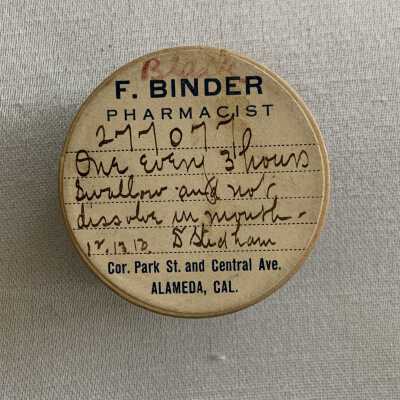 Black
F. BINDER
PHARMACIST
277077
One every 3 hours
Swallow and not
dissolve in mouth-
Stedham
Cor. Park St. and Central Ave.
ALAMEDA, CAL.